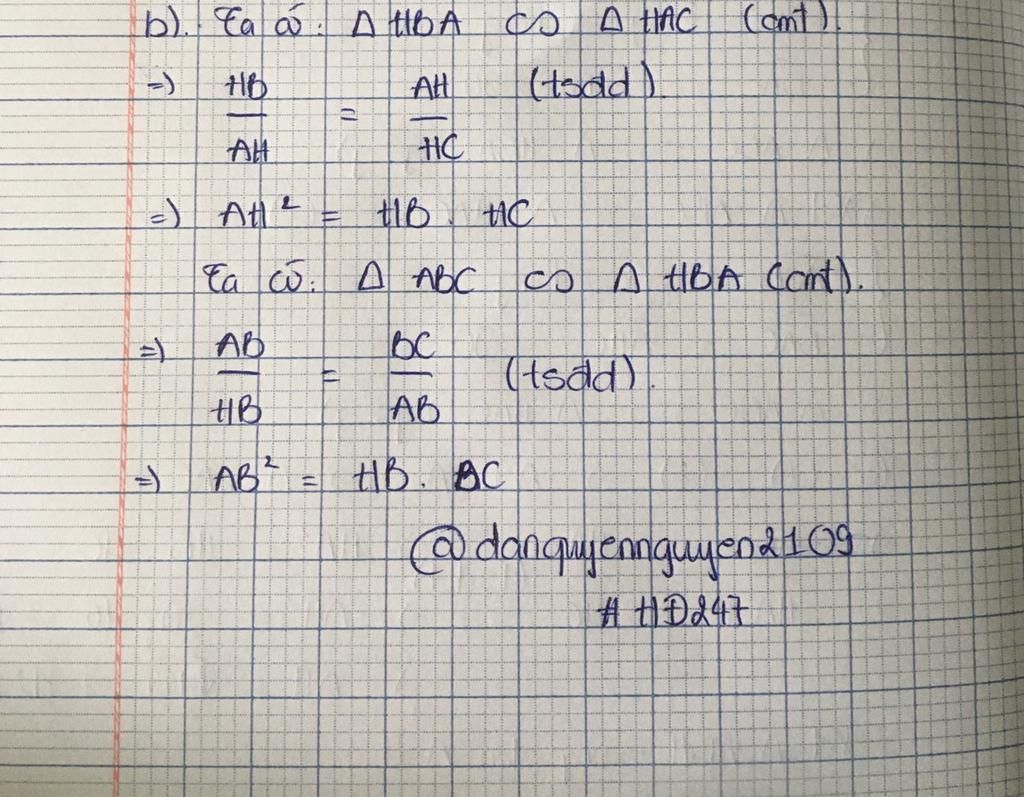 b). Ta có: Δ HBA ∽ Δ HAC (cmt).
=> HB/AH = AH/HC (tsdd).
=> AH² = HB . HC
Ta có: Δ ABC ∽ Δ HBA (cmt).
=> AB/HB = BC/AB (tsdd).
=> AB² = HB . BC
@danquyennguyen2109
# HĐ247